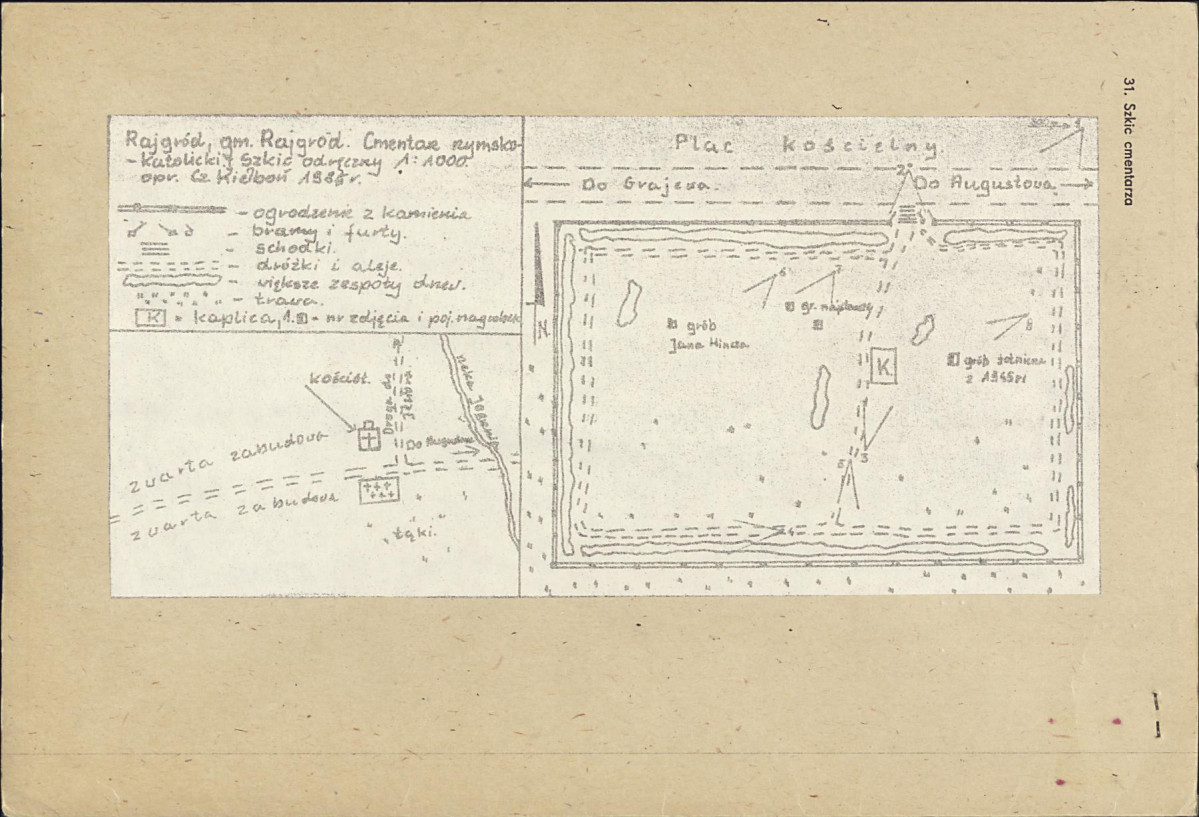 31. Szkic cmentarza
Rajgród, gm. Rajgród. Cmentarz rzymsko-
-katolicki. Szkic odręczny 1:1000.
opr. Cz Kiełboń
- ogrodzenie z kamienia
- bramy i furty.
- schodki.
- dróżki i aleje.
- większe zespoły drzew.
- trawa.
K - kaplica, 1. - nr zdjęcia i poj. nagrobek
Plac kościelny.
Do Grajewa.
Do Augustowa
1
2
6
7
8
grób
Jana Hincza
gr.
K
grób żołnierza
z 1945r
3
5
4
N
kościół.
rzeka Jegrznia
Do Augustowa
zwarta zabudowa
zwarta zabudowa
łąki.